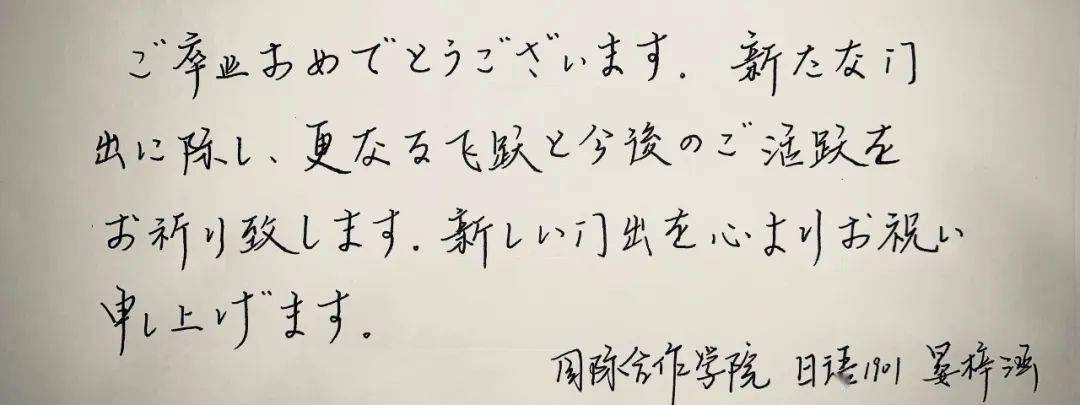 ご卒业おめでとうございます. 新たな门
出に际し、更なる飞跃と今後のご活跃を
お祈り致します. 新しい门出を心よりお祝い
申し上げます。
国际合作学院 日语1901 晏梓涵